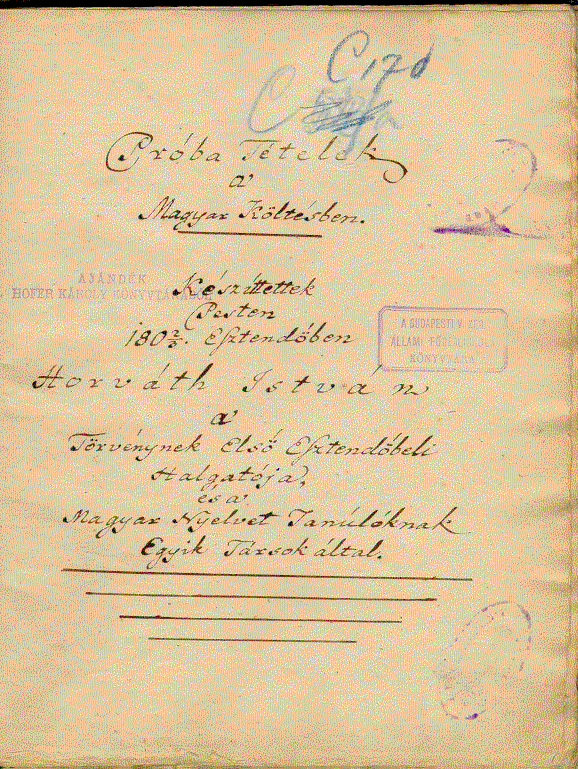 C 170
C
Próba Tételek
a'
Magyar Költésben.
AJÁNDÉK
HOFER KÁROLY KÖNYVTÁRÁBÓL
Készíttettek
Pesten
180 2/3. Esztendőben
A BUDAPESTI V. KER.
ÁLLAMI FŐREÁLISK.
KÖNYVTÁRA
Horváth István
a'
Törvénynek Első Esztendőbeli
Halgatója,
és a'
Magyar Nyelvet Tanúlóknak
Egyik Társok által.